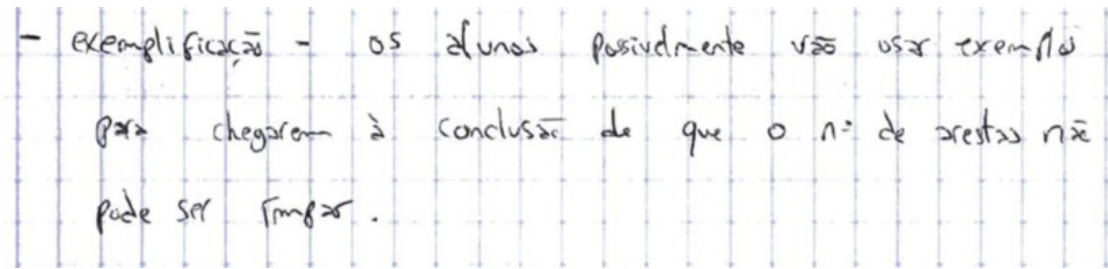 - exemplificação - os alunos possivelmente vão usar exemplos
para chegarem à conclusão de que o nº de arestas não
pode ser ímpar.